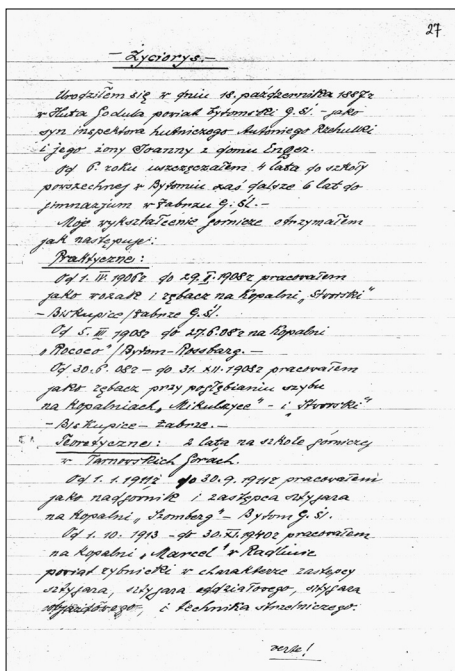 27
- Życiorys. -
Urodziłem się w dniu 18. października 1887 r
w Huta Godula powiat bytomski G. Śl. - jako
syn inspektora hutniczego Antoniego
i jego żony Joanny z domu
Od 6. roku uszczęczałem 4 lata do szkoły
powszechnej w Bytomiu zaś dalsze 6 lat do
gimnazjum w Zabrzu G. Śl. -
Moje wykształcenie górnicze otrzymałem
jak następuje:
Praktyczne:
Od 1. IV. 1906 r do 29. II. 1908 r pracowałem
jako wozak i rębacz na kopalni
- Biskupice / Zabrze G. Śl.
Od 5. III 1908 r do 27.6.08 r na kopalni
"Rococo" / Bytom - Rossberg. -
Od 30.6.08 r - do 31. XII. 1908 r pracowałem
jako rębacz przy pogłębianiu szybu
na kopalniach - i
- Biskupice - Zabrze. -
Teoretyczne: 2 lata na szkole górniczej
w Tarnowskich Górach.
Od 1. 1. 1911 r do 30. 9. 1911 r pracowałem
jako nadgórnik i zastępca sztygara
na kopalni - Bytom G. Śl.
Od 1. 10. 1913 - do 30. XI. 1940 r pracowałem
na kopalni „Marcel" w Radlinie
powiat rybnicki w charakterze zastępcy
sztygara, sztygara oddziałowego, sztygara
i technika strzelniczego.
verte!